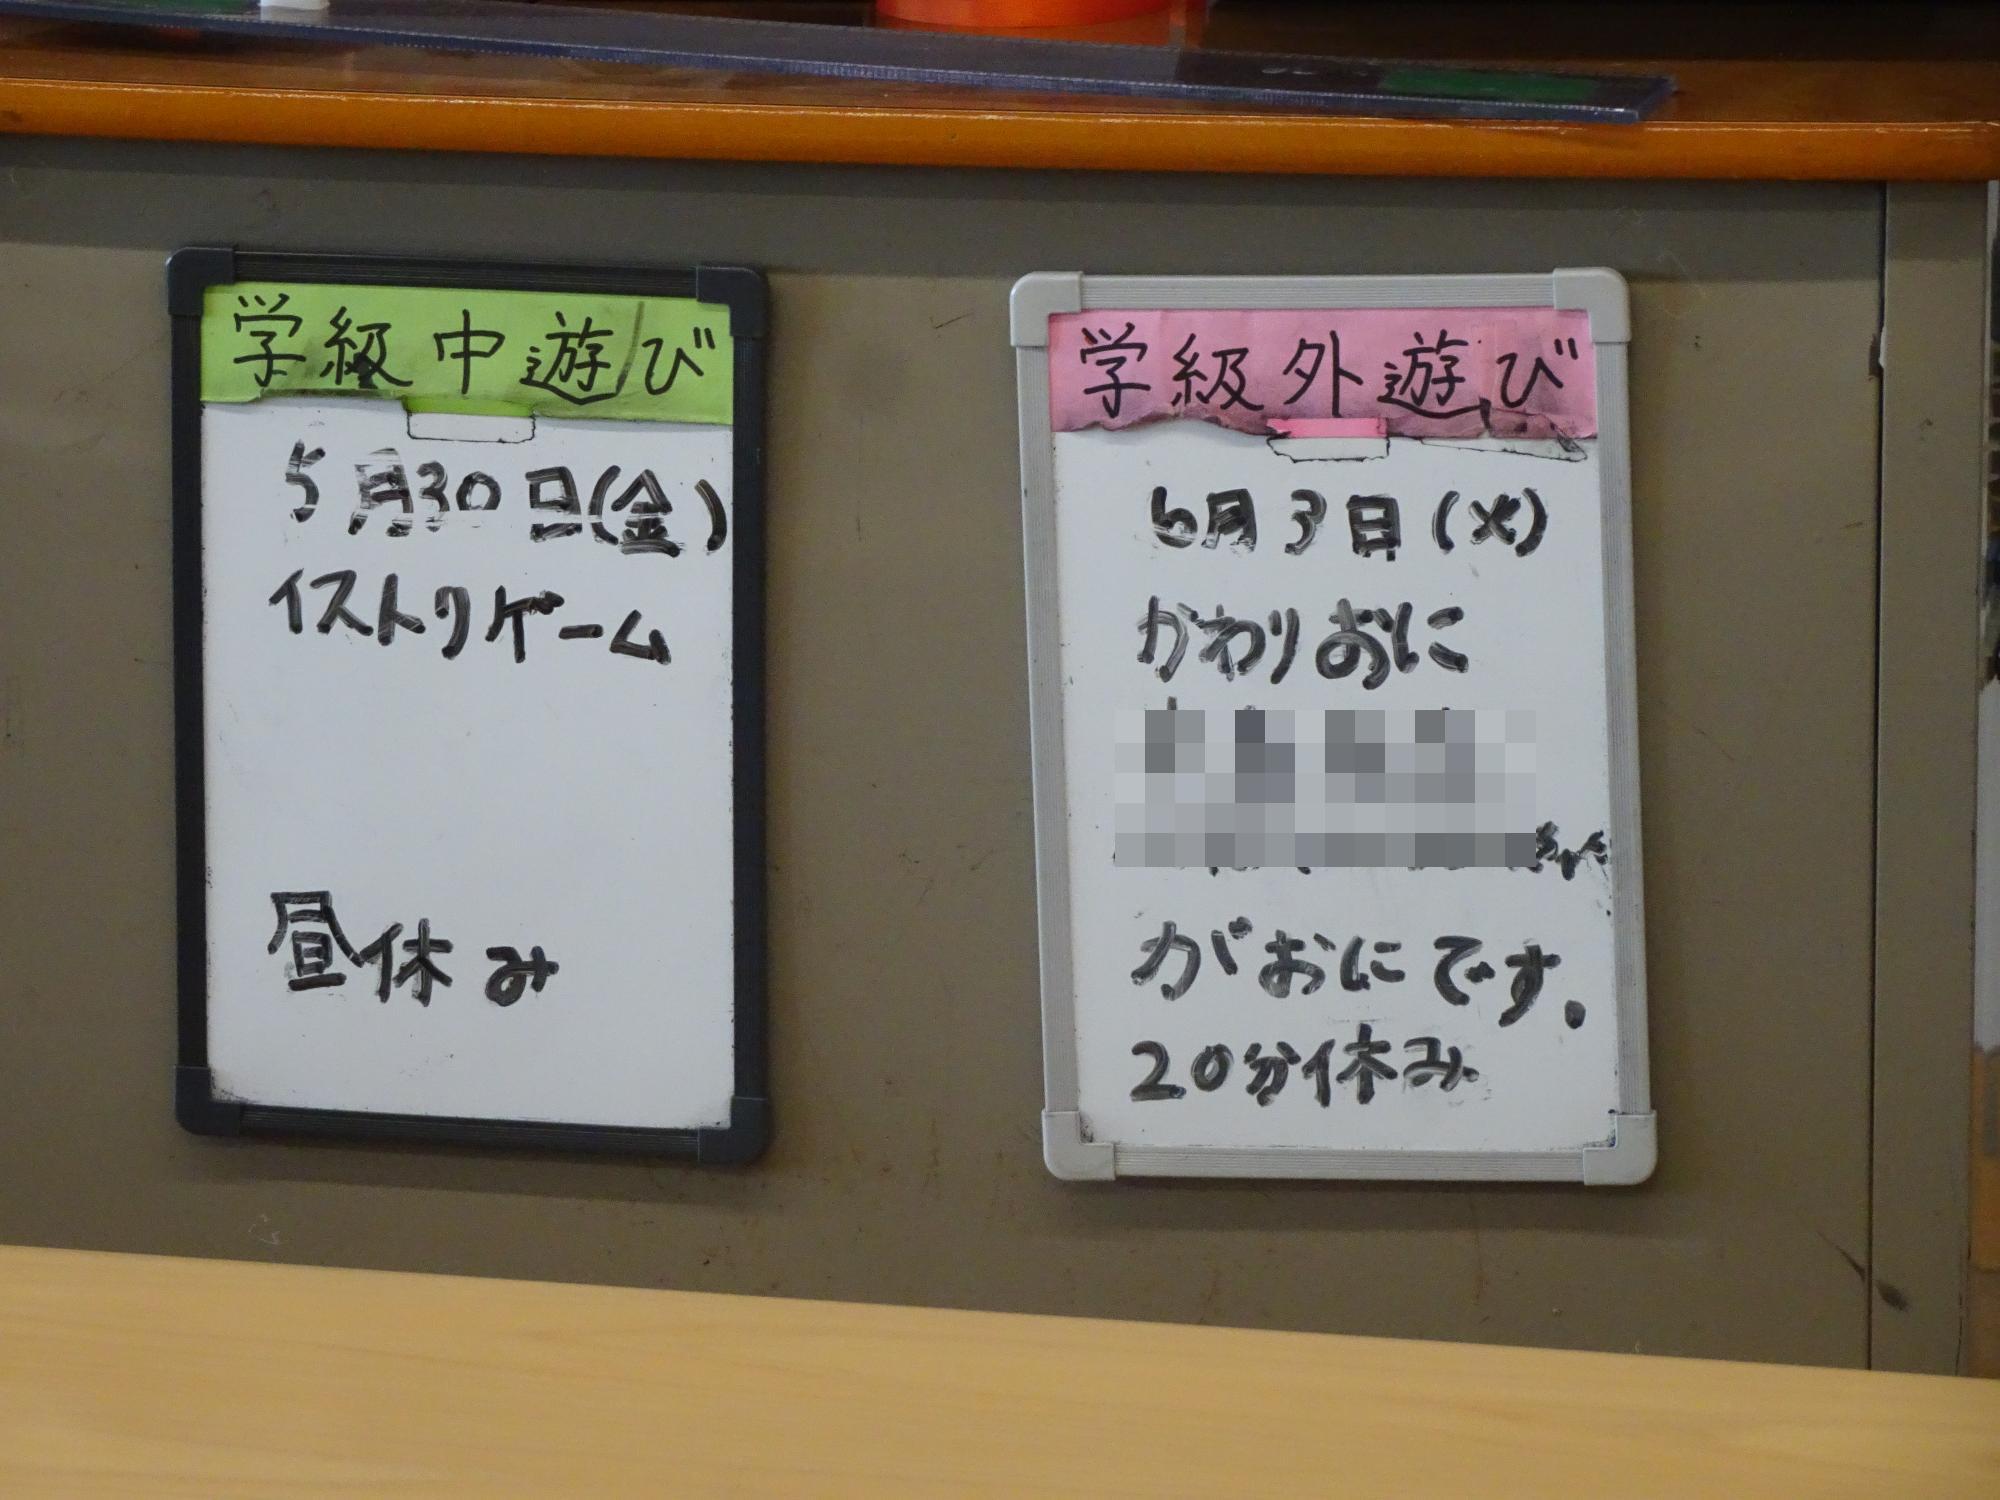 学級中遊び
5月30日(金)
イストリゲーム
昼休み
学級外遊び
6月3日(火)
かわりおに
がおにです.
20分休み